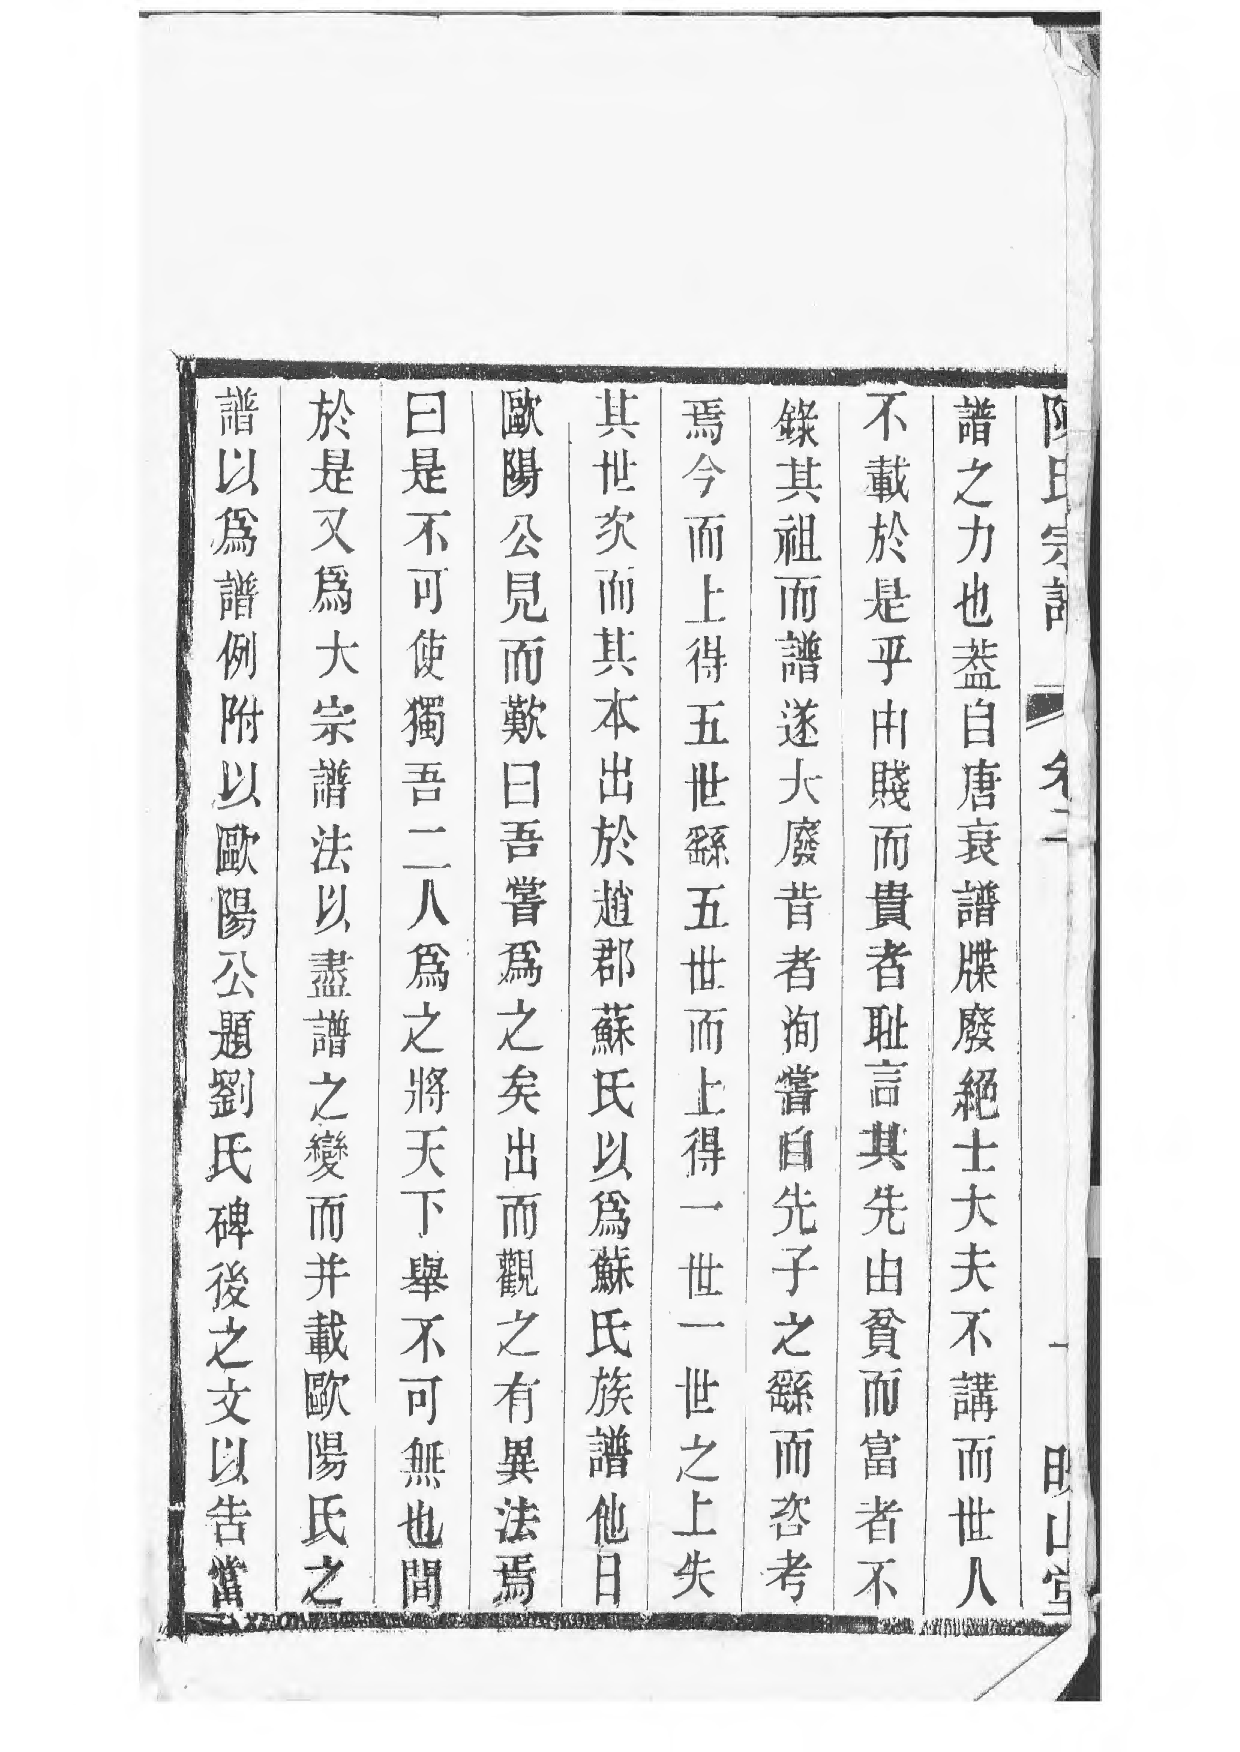 陳氏宗譜 卷二 一 映山堂
譜之力也葢自唐衰譜牒廢絕士大夫不講而世人
不載於是乎由賤而貴者耻言其先由貧而富者不
錄其祖而譜遂大廢昔者洵嘗自先子之繇而咨考
焉今而上得五世繇五世而上得一世一世之上失
其世次而其本出於趙郡蘇氏以爲蘇氏族譜他日
歐陽公見而歎曰吾嘗爲之矣出而觀之有異法焉
曰是不可使獨吾二人爲之將天下舉不可無也間
於是又爲大宗譜法以盡譜之變而并載歐陽氏之
譜以爲譜例附以歐陽公題劉氏碑後之文以告當